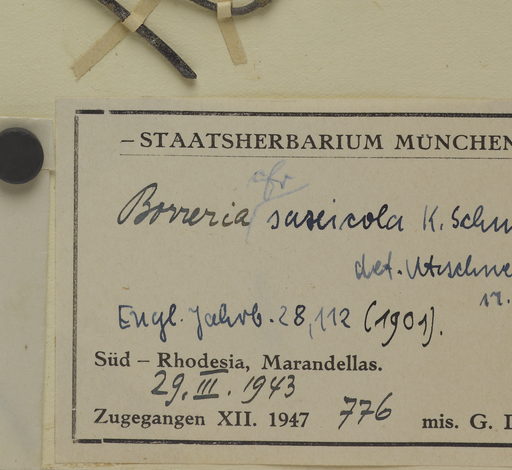 – STAATSHERBARIUM MÜNCHEN
afr
Borreria saxicola K. Schu
det.
Engl. Jahrb. 28, 112 (1901).
Süd – Rhodesia, Marandellas.
29. III. 1943
Zugegangen XII. 1947 776 mis. G.